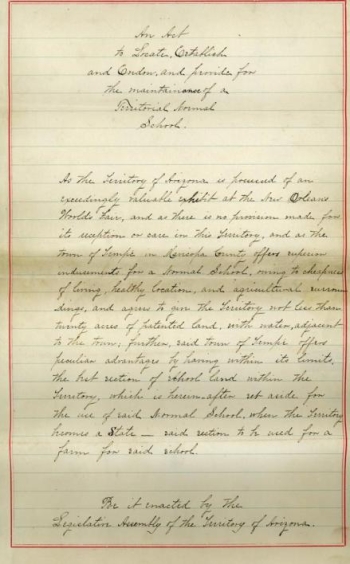 An Act
to Locate, Establish
and Endow, and provide for
the maintainance of a
Territorial Normal
School.
As the Territory of Arizona is possessed of an
exceedingly valuable exhibit at the New Orleans
Worlds Fair, and as there is no provision made for
its reception or care in this Territory, and as the
town of Tempe in Maricopa County offers superior
inducements for a Normal School, owing to cheapness
of living, healthy location, and agricultural surroun
dings, and agrees to give the Territory not less than
twenty acres of patented land, with water, adjacent
to the town; further, said town of Tempe offers
peculiar advantages by having within its limits
the section of school land within the
Territory, which is hereinafter set aside for
the use of said Normal School, when the Territory
becomes a State — said section to be used for a
farm for said school.
Be it enacted by the
Legislative Assembly of the Territory of Arizona.